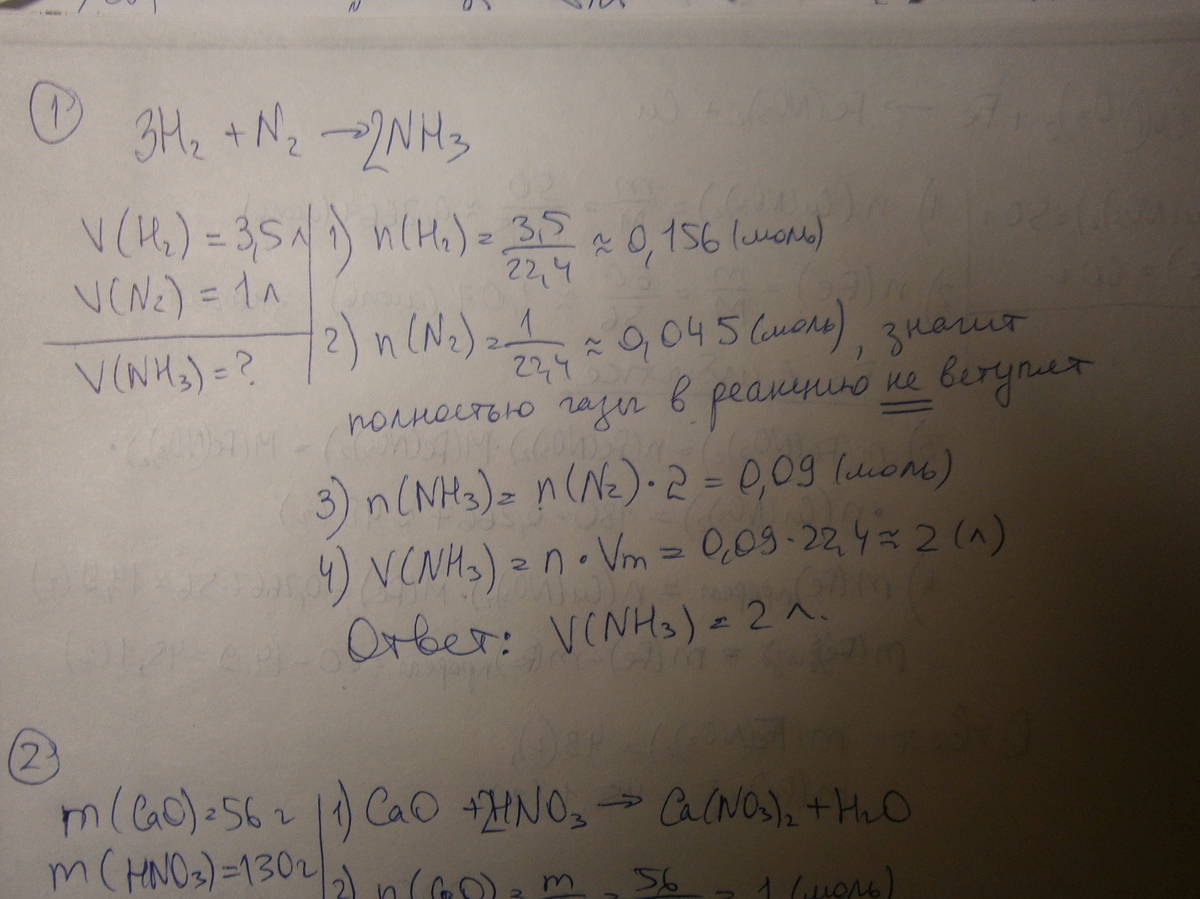 1
3H₂ + N₂ → 2NH₃
V(H₂) = 3,5 л
V(N₂) = 1 л
V(NH₃) = ?
1) n(H₂) = 3,5/22,4 ≈ 0,156 (моль)
2) n(N₂) = 1/22,4 ≈ 0,045 (моль), значит
полностью газы в реакцию не вступят
3) n(NH₃) = n(N₂)·2 = 0,09 (моль)
4) V(NH₃) = n·Vm = 0,09·22,4 ≈ 2 (л)
Ответ: V(NH₃) = 2 л.
2
m(CaO) = 56 г
m(HNO₃) = 130 г
1) CaO + 2HNO₃ → Ca(NO₃)₂ + H₂O
2) n(CaO) = m = 56 = 1 (моль)